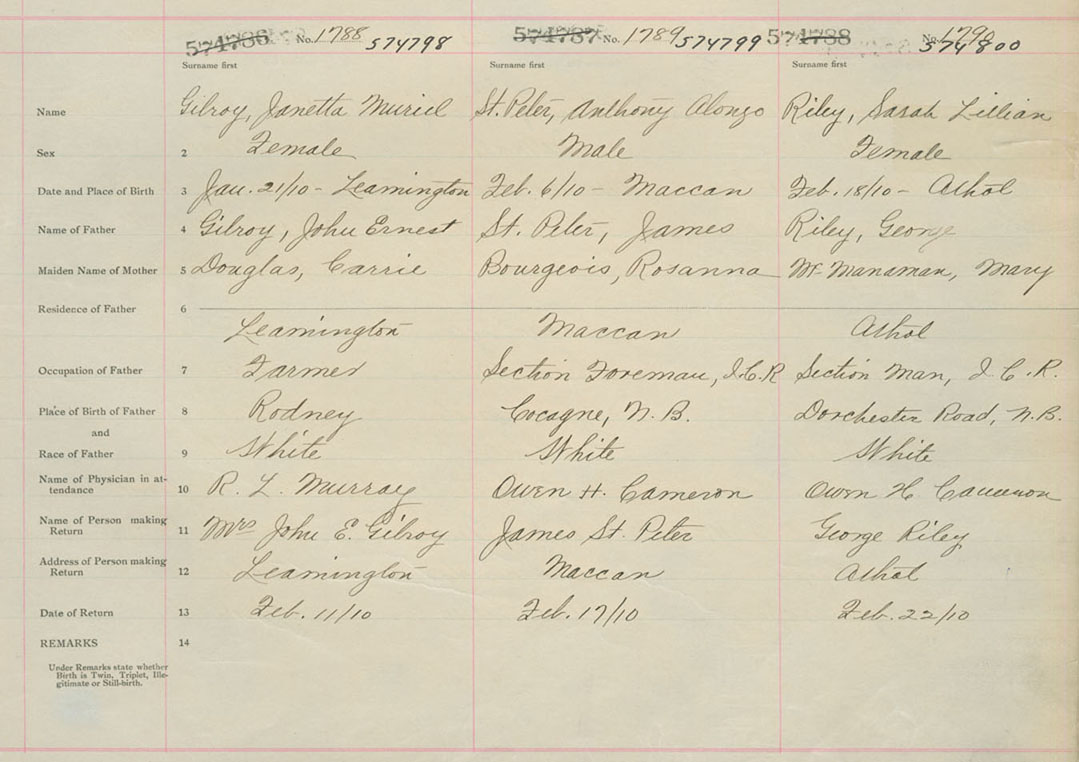 574786 No. 1788 574798 574787 No. 1789 574799 574788 No. 1790 574800
Surname first Surname first Surname first
Name Gilroy, Janetta Muriel St. Peter, Anthony Alonzo Riley, Sarah Lillian
Sex 2 Female Male Female
Date and Place of Birth 3 Jan. 21/10 - Leamington Feb. 6/10 - Maccan Feb. 18/10 - Athol
Name of Father 4 Gilroy, John Ernest St. Peter, James Riley, George
Maiden Name of Mother 5 Douglas, Carrie Bourgeois, Rosanna McManaman, Mary
Residence of Father 6
Leamington Maccan Athol
Occupation of Father 7 Farmer Section Foreman, I.C.R Section Man, I.C.R.
Place of Birth of Father 8 Rodney Cocagne, N.B. Dorchester Road, N.B.
and
Race of Father 9 White White White
Name of Physician in at-
tendance 10 R. L. Murray Owen H. Cameron Owen H Cameron
Name of Person making
Return 11 Mrs John E. Gilroy James St. Peter George Riley
Address of Person making
Return 12 Leamington Maccan Athol
Date of Return 13 Feb. 11/10 Feb. 17/10 Feb. 22/10
REMARKS 14
Under Remarks state whether
Birth is Twin, Triplet, Ille-
gitimate or Still-birth.